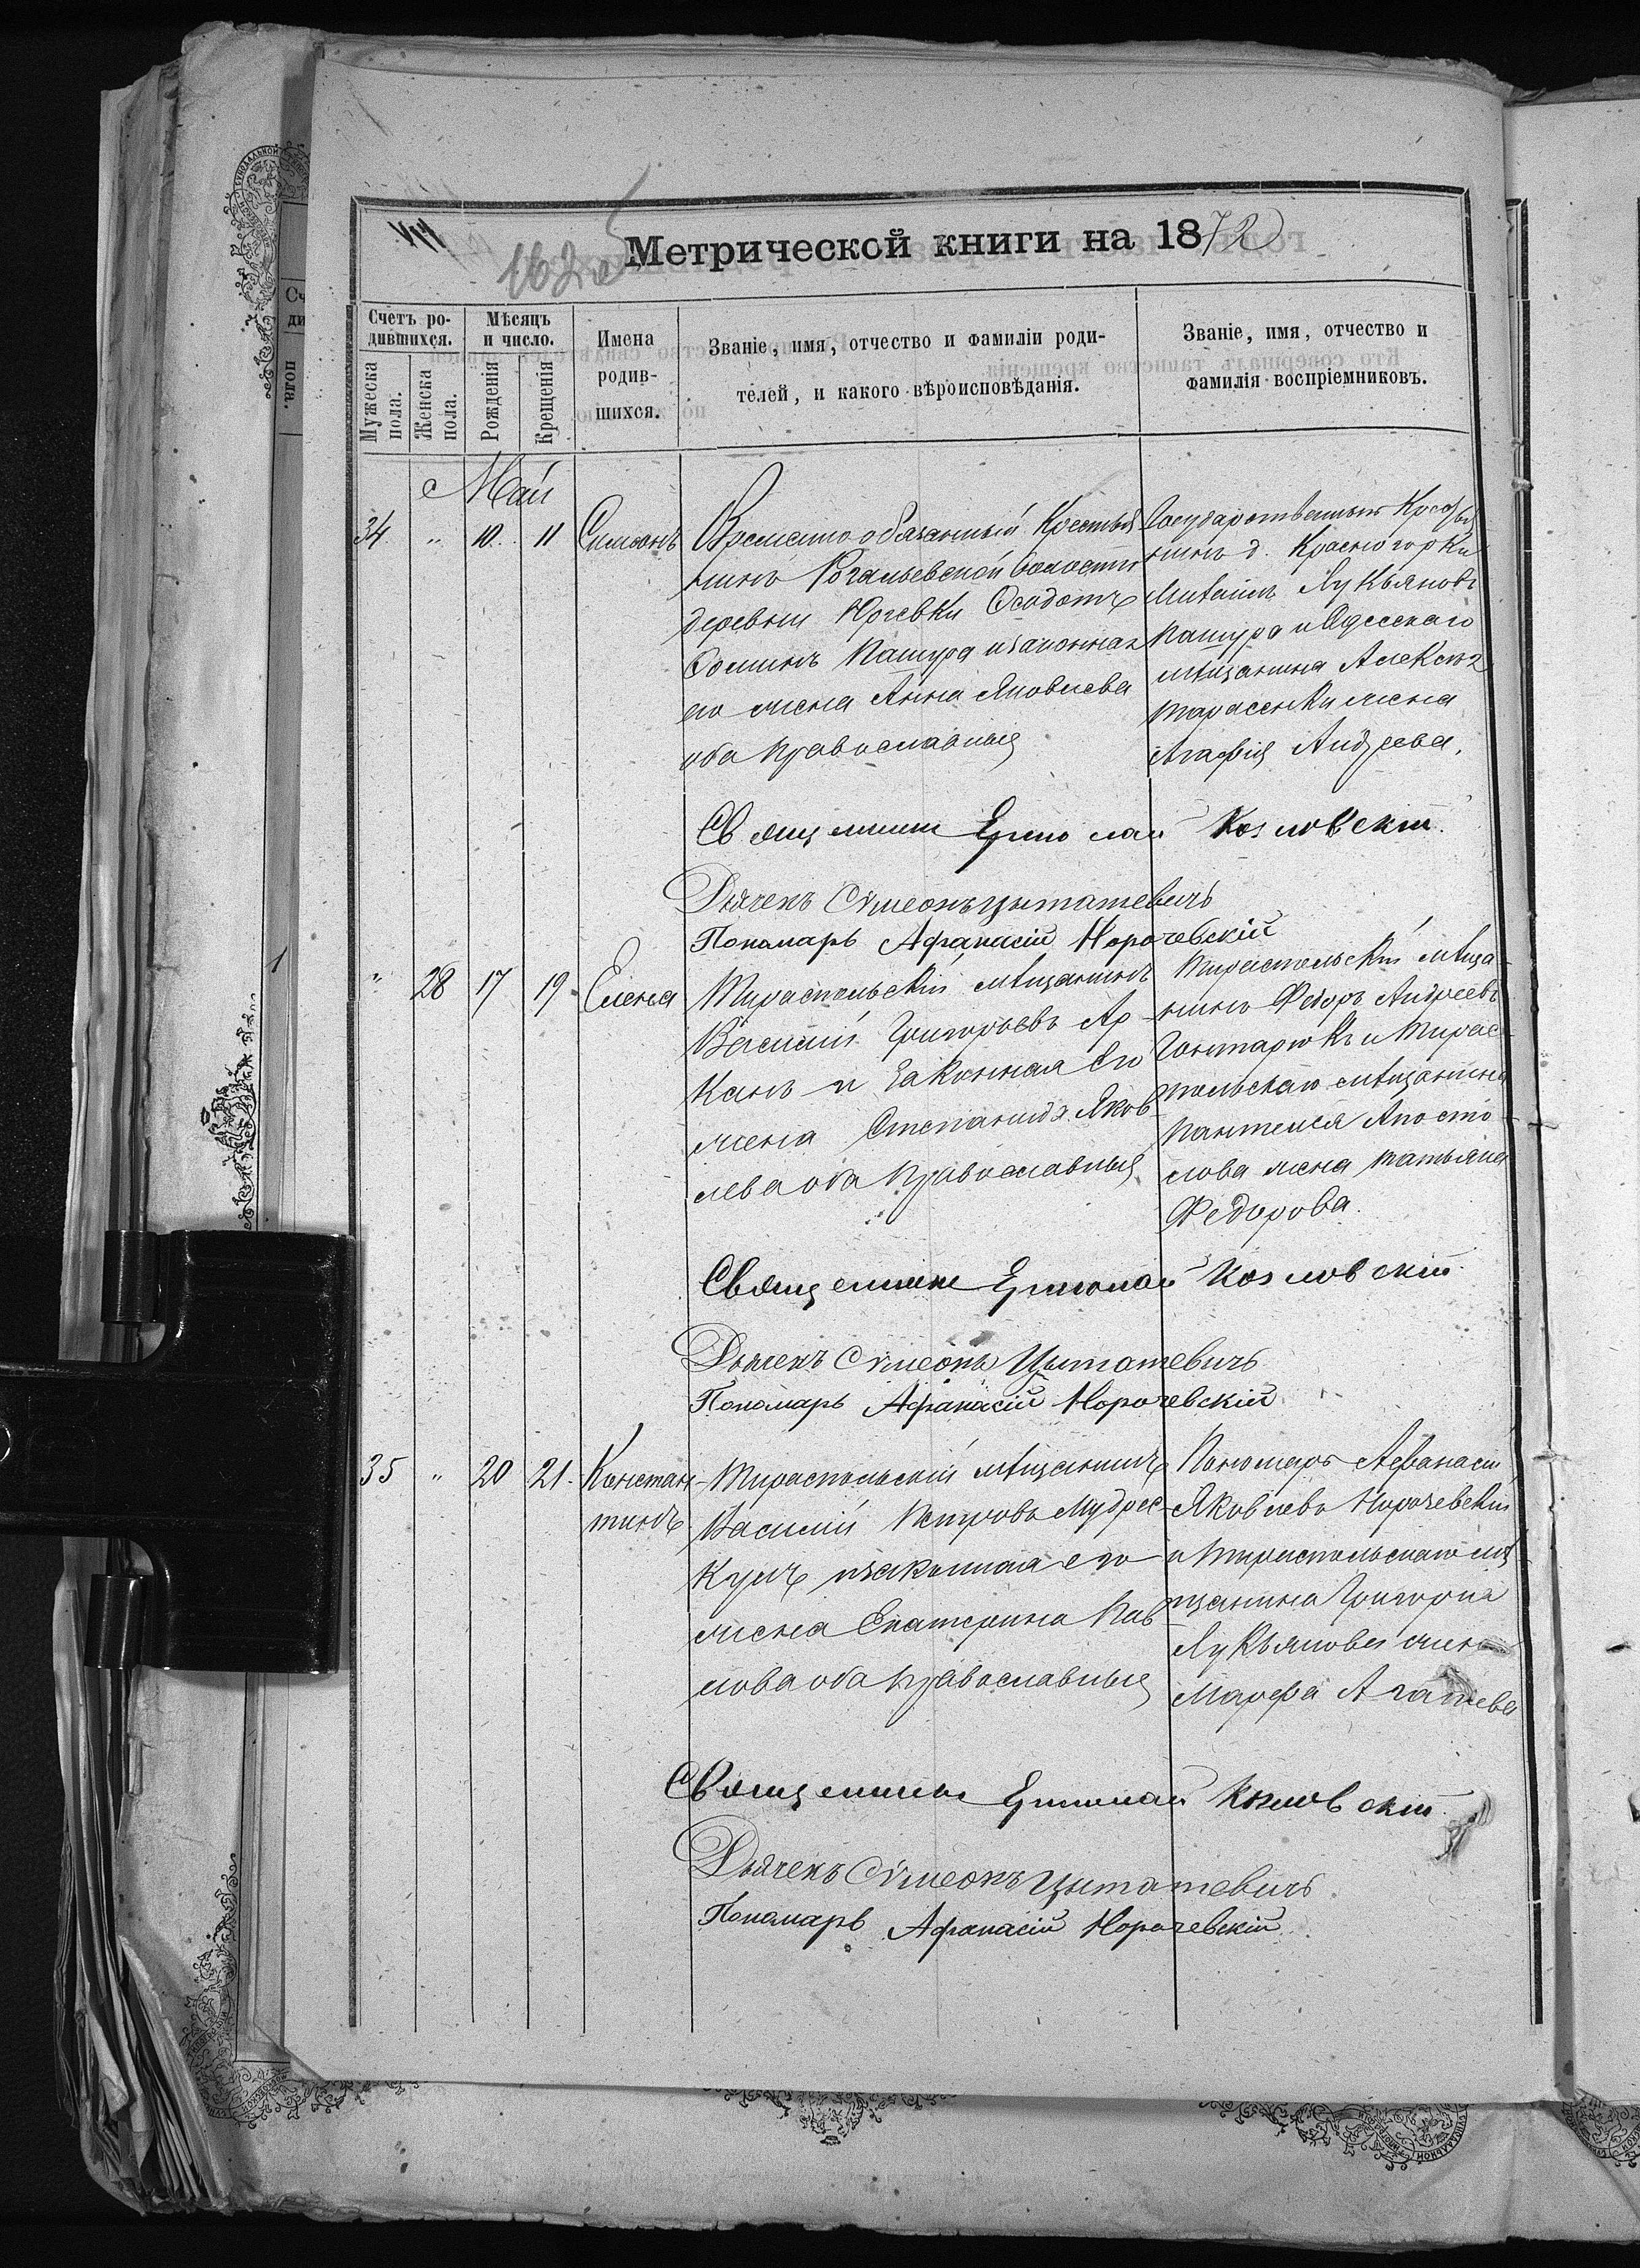 Метрической книги на 1872
Счетъ ро-
дившихся.
Мужеска
пола.
Женска
пола.
Мѣсяцъ
и число.
Рожденія
Крещенія
Имена
родив-
шихся.
Званіе, имя, отчество и фамиліи роди-
телей, и какого вѣроисповѣданія.
Званіе, имя, отчество и
фамилія воспріемниковъ.
Май
34 " 10. 11 Симеонъ
Временно обязанный Крестья
нинъ волости
деревни Юрьевки Феодотъ
Фоминъ Пашура и законная
его жена Анна Яковлева
оба православныя
Государственный Крестья
нинъ д. Красногорки
Михаилъ Лукьяновъ
Пашура и Одесскаго
мѣщанина
Тарасенки жена
Агафія Андреева.
Священникъ Ермолай Козловскій.
Дьячекъ Сѵмеонъ Цытатевичъ
Пономарь Афанасій Норочевскій
" 28 17 19 Елена
Тираспольскій мѣщанинъ
Василій Григорьевъ Ар-
канъ и законная его
жена Степанида Яков-
лева оба православныя
Тираспольскій мѣща-
нинъ Федоръ Андреевъ
Гонтарюкъ и Тирас-
польскаго мѣщанина
Пантелея Апосто-
лова жена Татьяна
Федорова.
Священникъ Ермолай Козловскій.
Дьячекъ Сѵмеонъ Цытатевичъ
Пономарь Афанасій Норочевскій
35 " 20 21. Констан-
тинъ
Тираспольскій мѣщанинъ
Василій Петровъ Мудрес-
кулъ и законная его
жена Екатерина Пав-
лова оба православныя
Пономарь Афанасій
Яковлевъ Норочевскій
и Тираспольскаго мѣ
щанина Григорія
Лукьянова жена
Марфа
Священникъ Ермолай Козловскій.
Дьячекъ Сѵмеонъ Цытатевичъ
Пономарь Афанасій Норочевскій